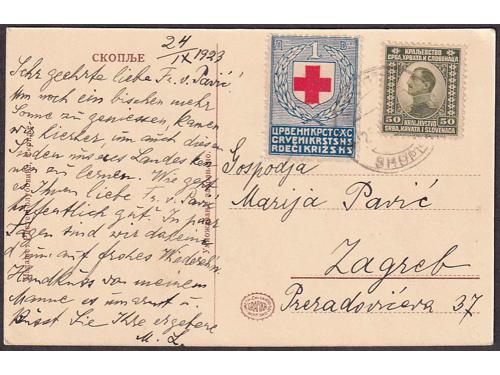 СКОПЉЕ
24/IX 1923
Sehr geehrte liebe Fr. v. Pavić!
Um noch ein bischen mehr
Sonne zu geniessen, kamen
wir hierher, um auch diesen
Süden unseres Landes ken-
nen zu lernen. Wie geht
es Ihnen liebe Fr. v. Pavić
hoffentlich gut. In paar
Tagen sind wir daheim
d. um auf frohes Wiedersehn
Handkuss von meinem
Manne es umarmt u.
küsst Sie Ihre ergebene
M. L.
1
ЦРВЕНИ КРСТ СХС
CRVENI KRST SHS
RDEČI KRIŽ SHS
КРАЉЕВСТВО
СРБА, ХРВАТА И СЛОВЕНАЦА
50 50
KRALJEVSTVO
SRBA, HRVATA I SLOVENACA
Gospodja
Marija Pavić
Zagreb
Preradovićeva 37